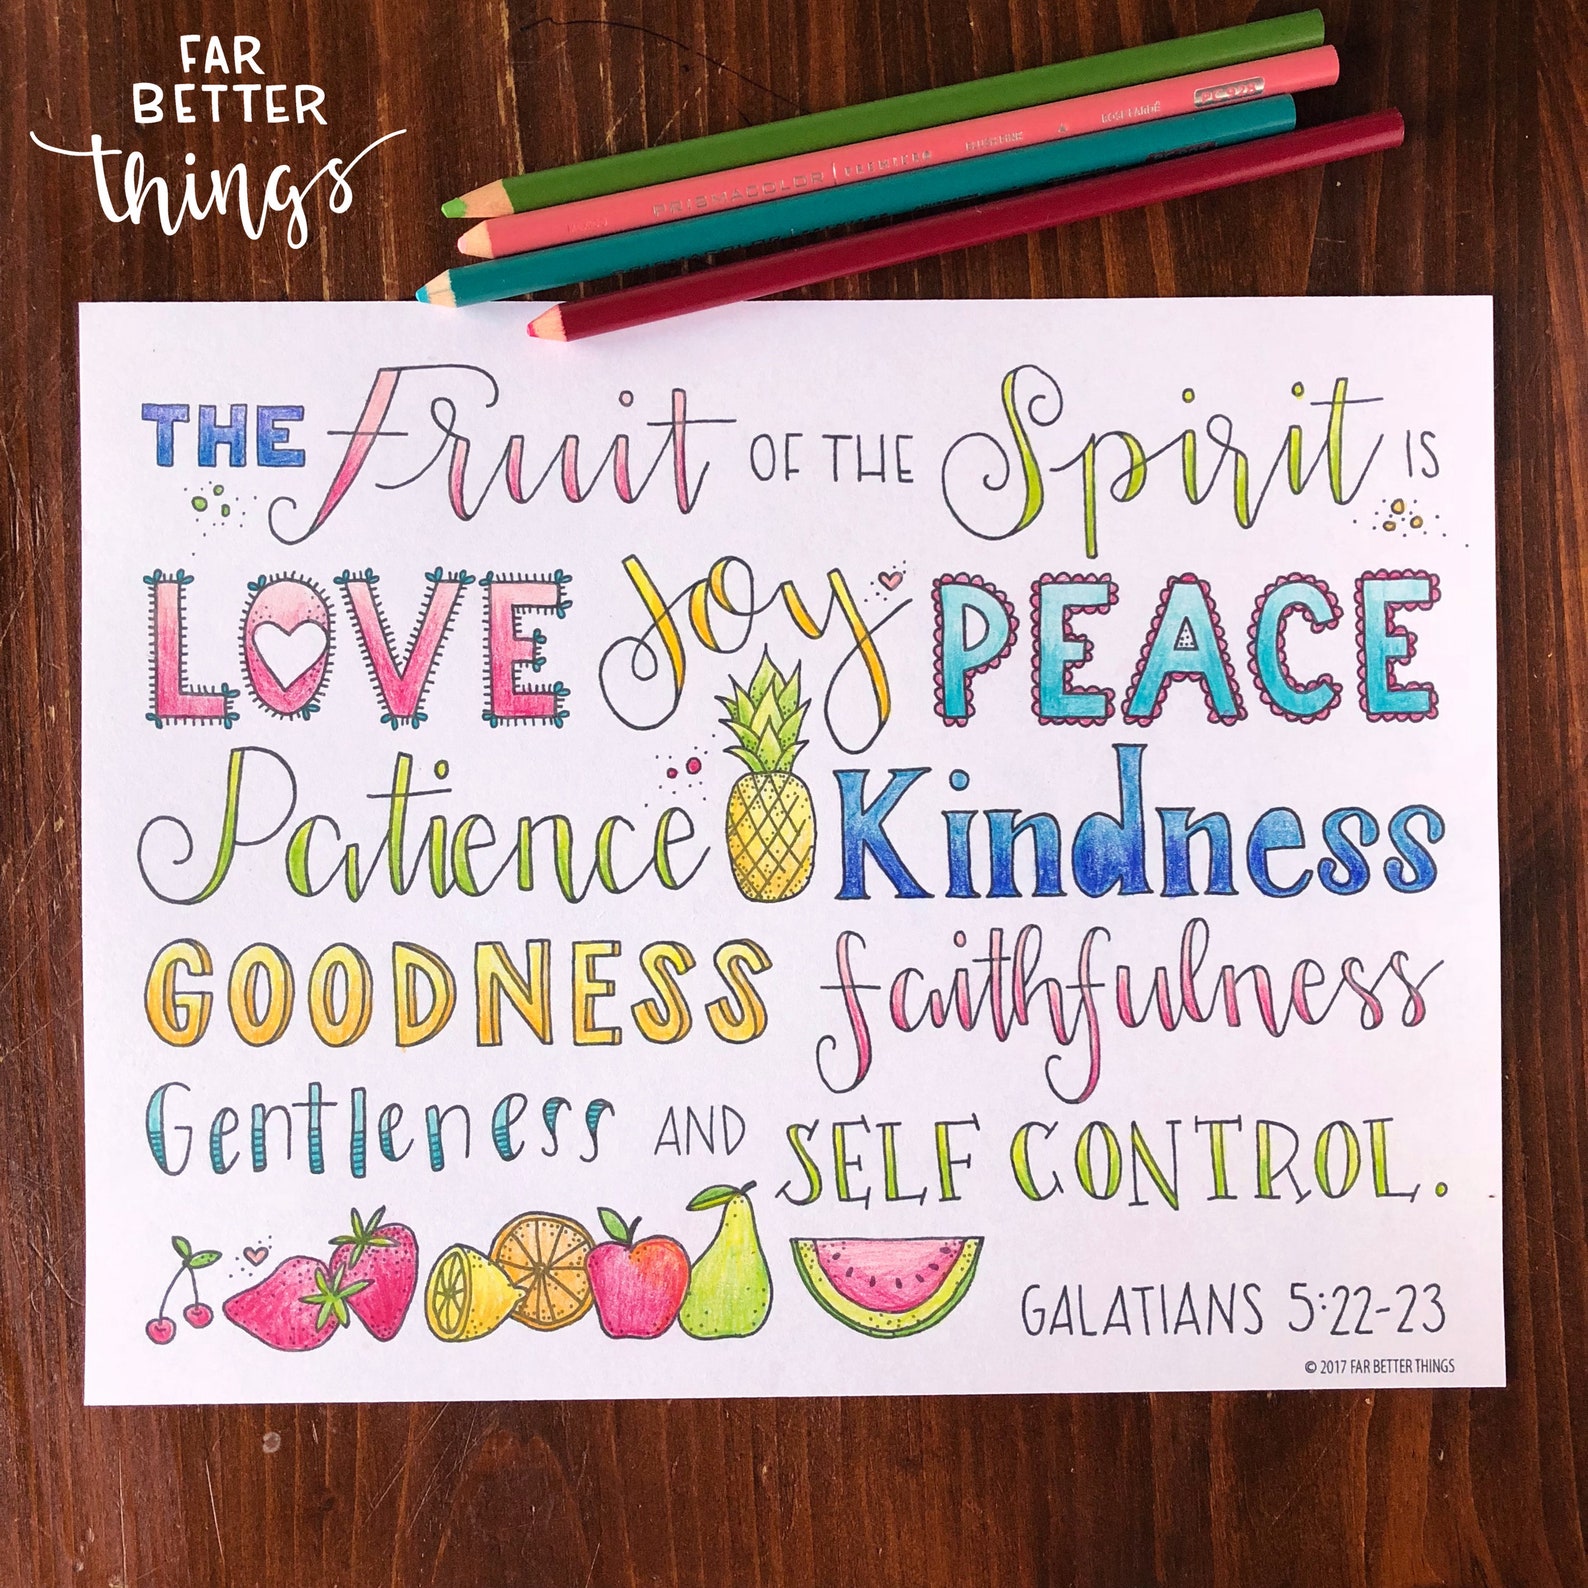 FAR
BETTER
things
PRISMACOLOR PREMIER BLUSH PINK ROSE FARDÉ PC 928
THE Fruit OF THE Spirit IS
LOVE Joy PEACE
Patience Kindness
GOODNESS faithfulness
Gentleness AND SELF CONTROL.
GALATIANS 5:22-23
© 2017 FAR BETTER THINGS